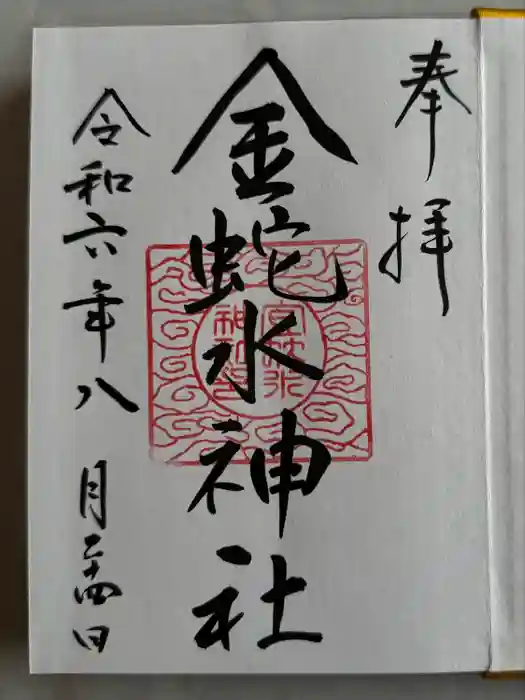 奉拝
金蛇水神社
令和六年八月二十四日